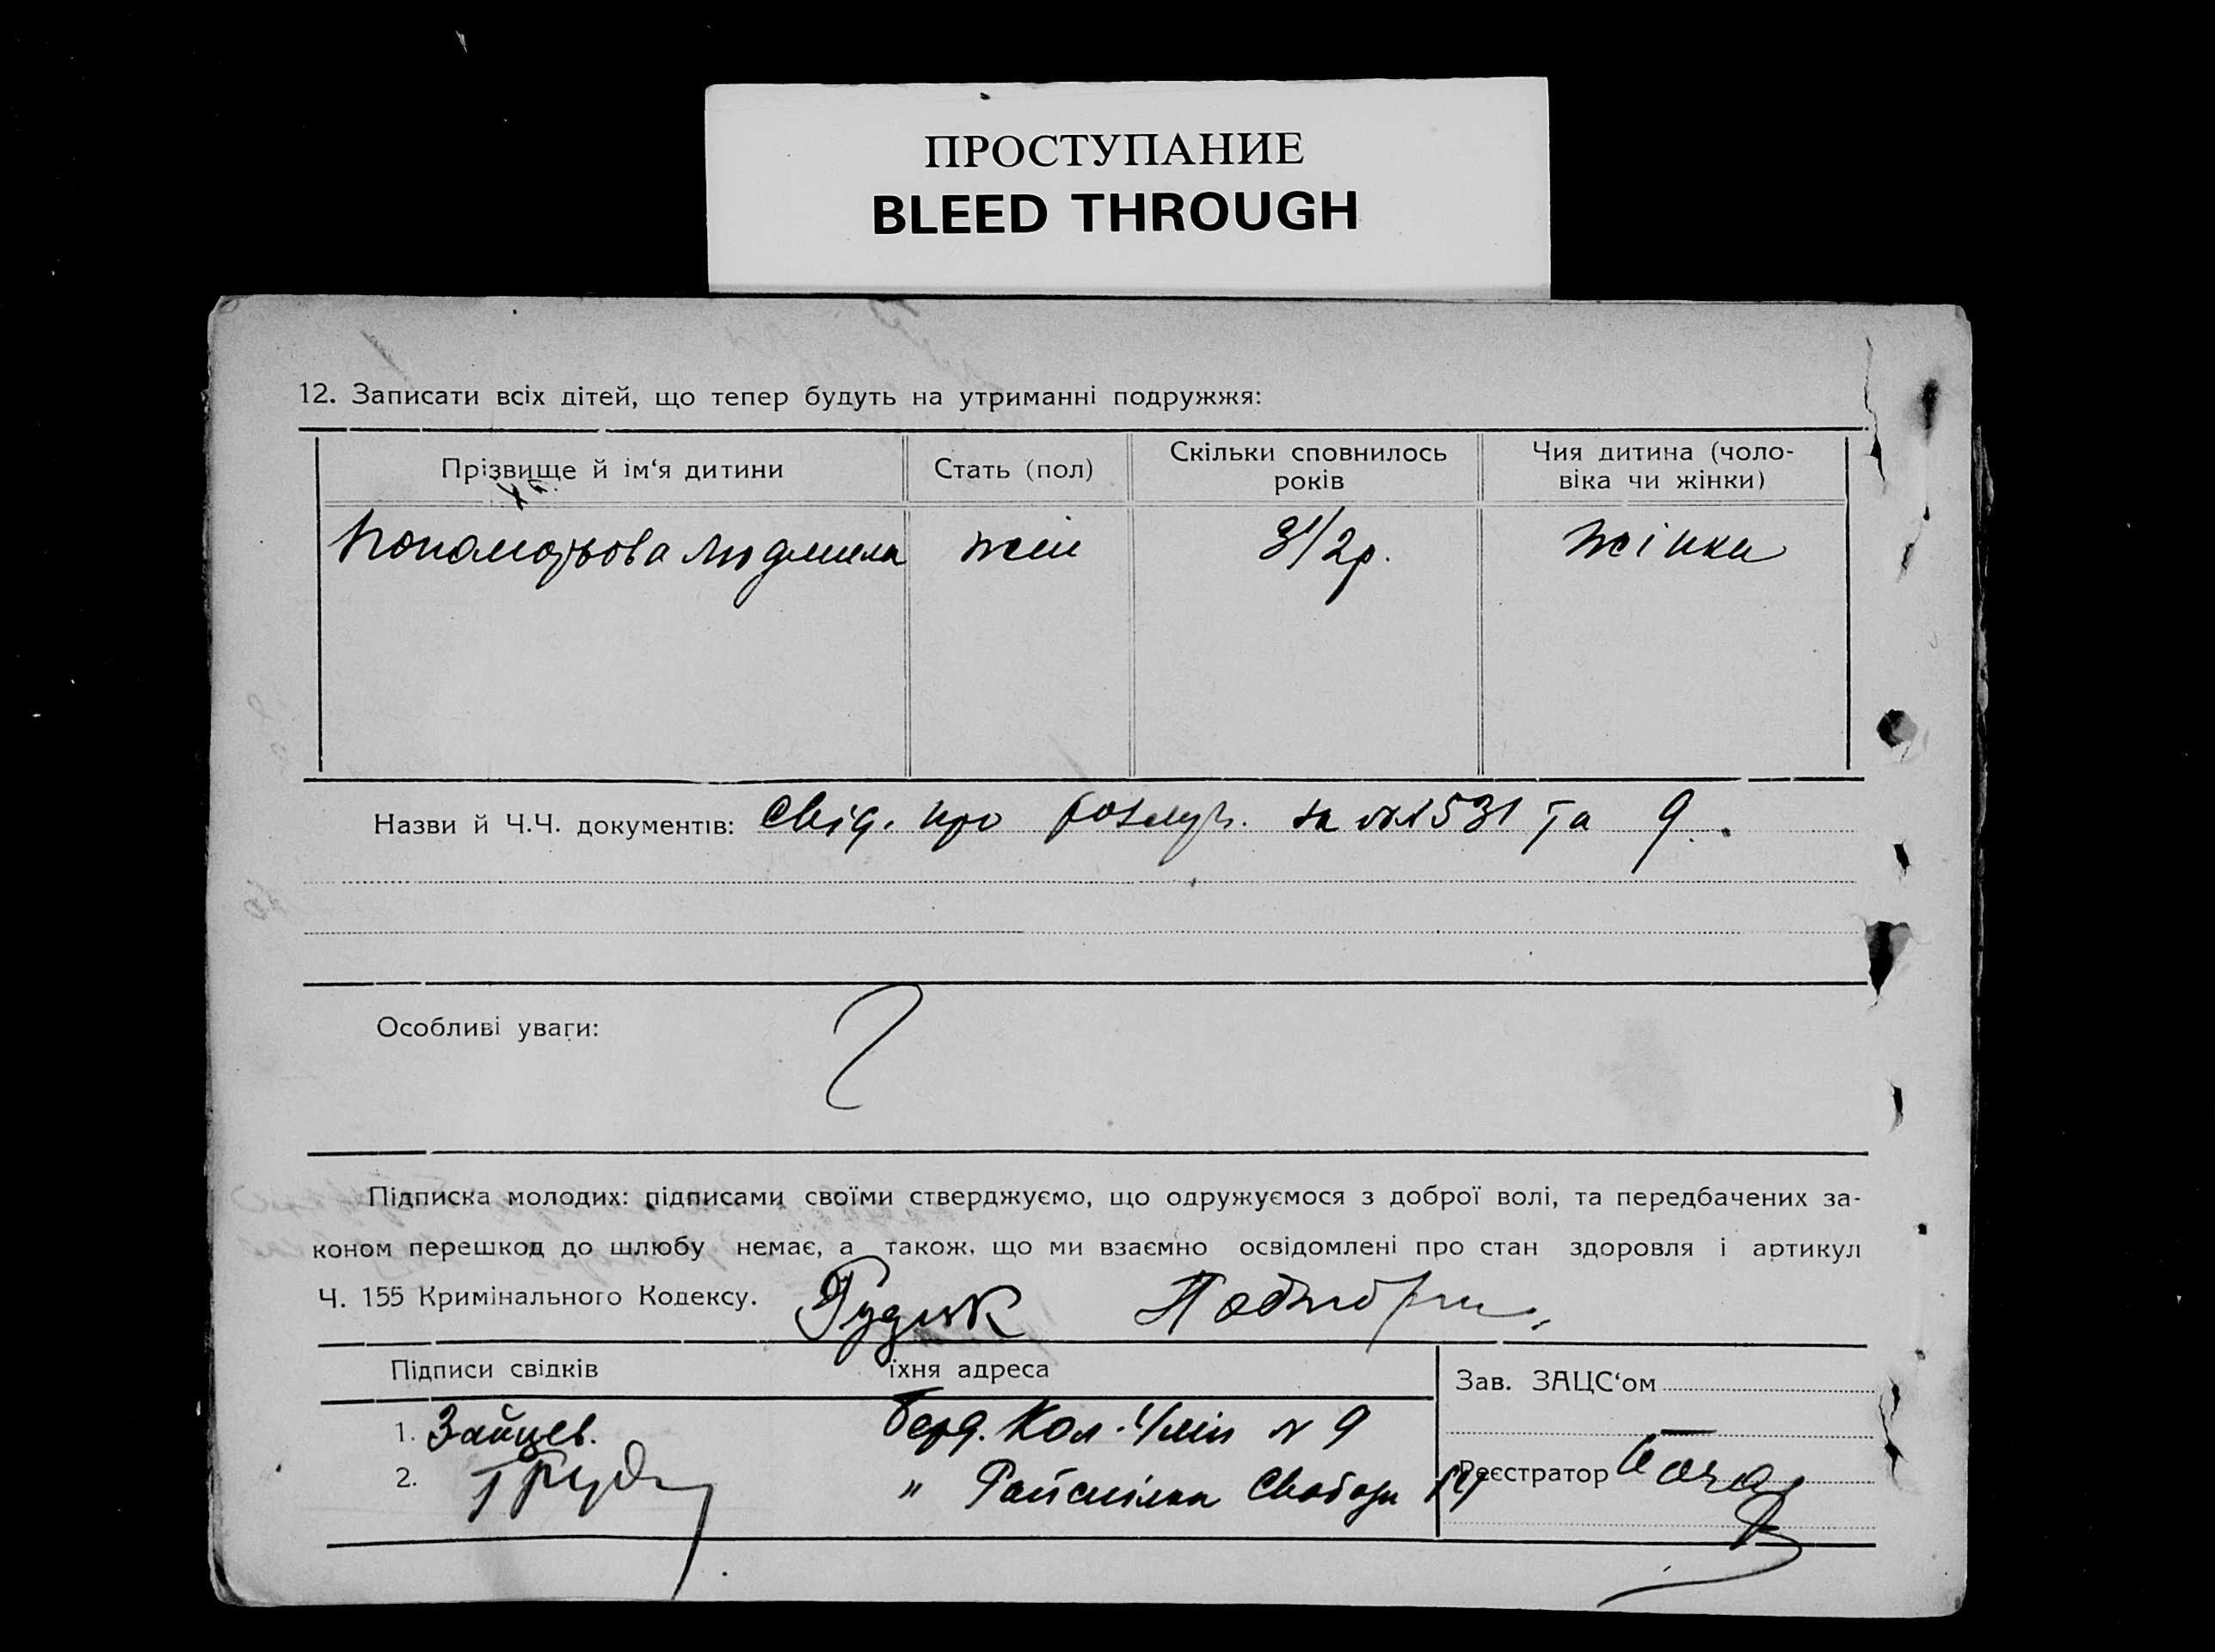 ПРОСТУПАНИЕ
BLEED THROUGH
12. Записати всіх дітей, що тепер будуть на утриманні подружжя:
Прізвище й ім‘я дитини
Стать (пол)
Скільки сповнилось років
Чия дитина (чоловіка чи жінки)
Людмила
жін
3 1/2 р.
жінки
Назви й Ч.Ч. документів: Свід. про розлуч. за №№ 531 та 9.
Особливі уваги:
Підписка молодих: підписами своїми стверджуємо, що одружуємося з доброї волі, та передбачених за-
коном перешкод до шлюбу немає, а також, що ми взаємно освідомлені про стан здоровля і артикул
Ч. 155 Кримінального Кодексу. Рудик
Підписи свідків
їхня адреса
Зав. ЗАЦС‘ом
1. Зайцев. Берд. Кол. № 9
2. " Свободи
Реєстратор